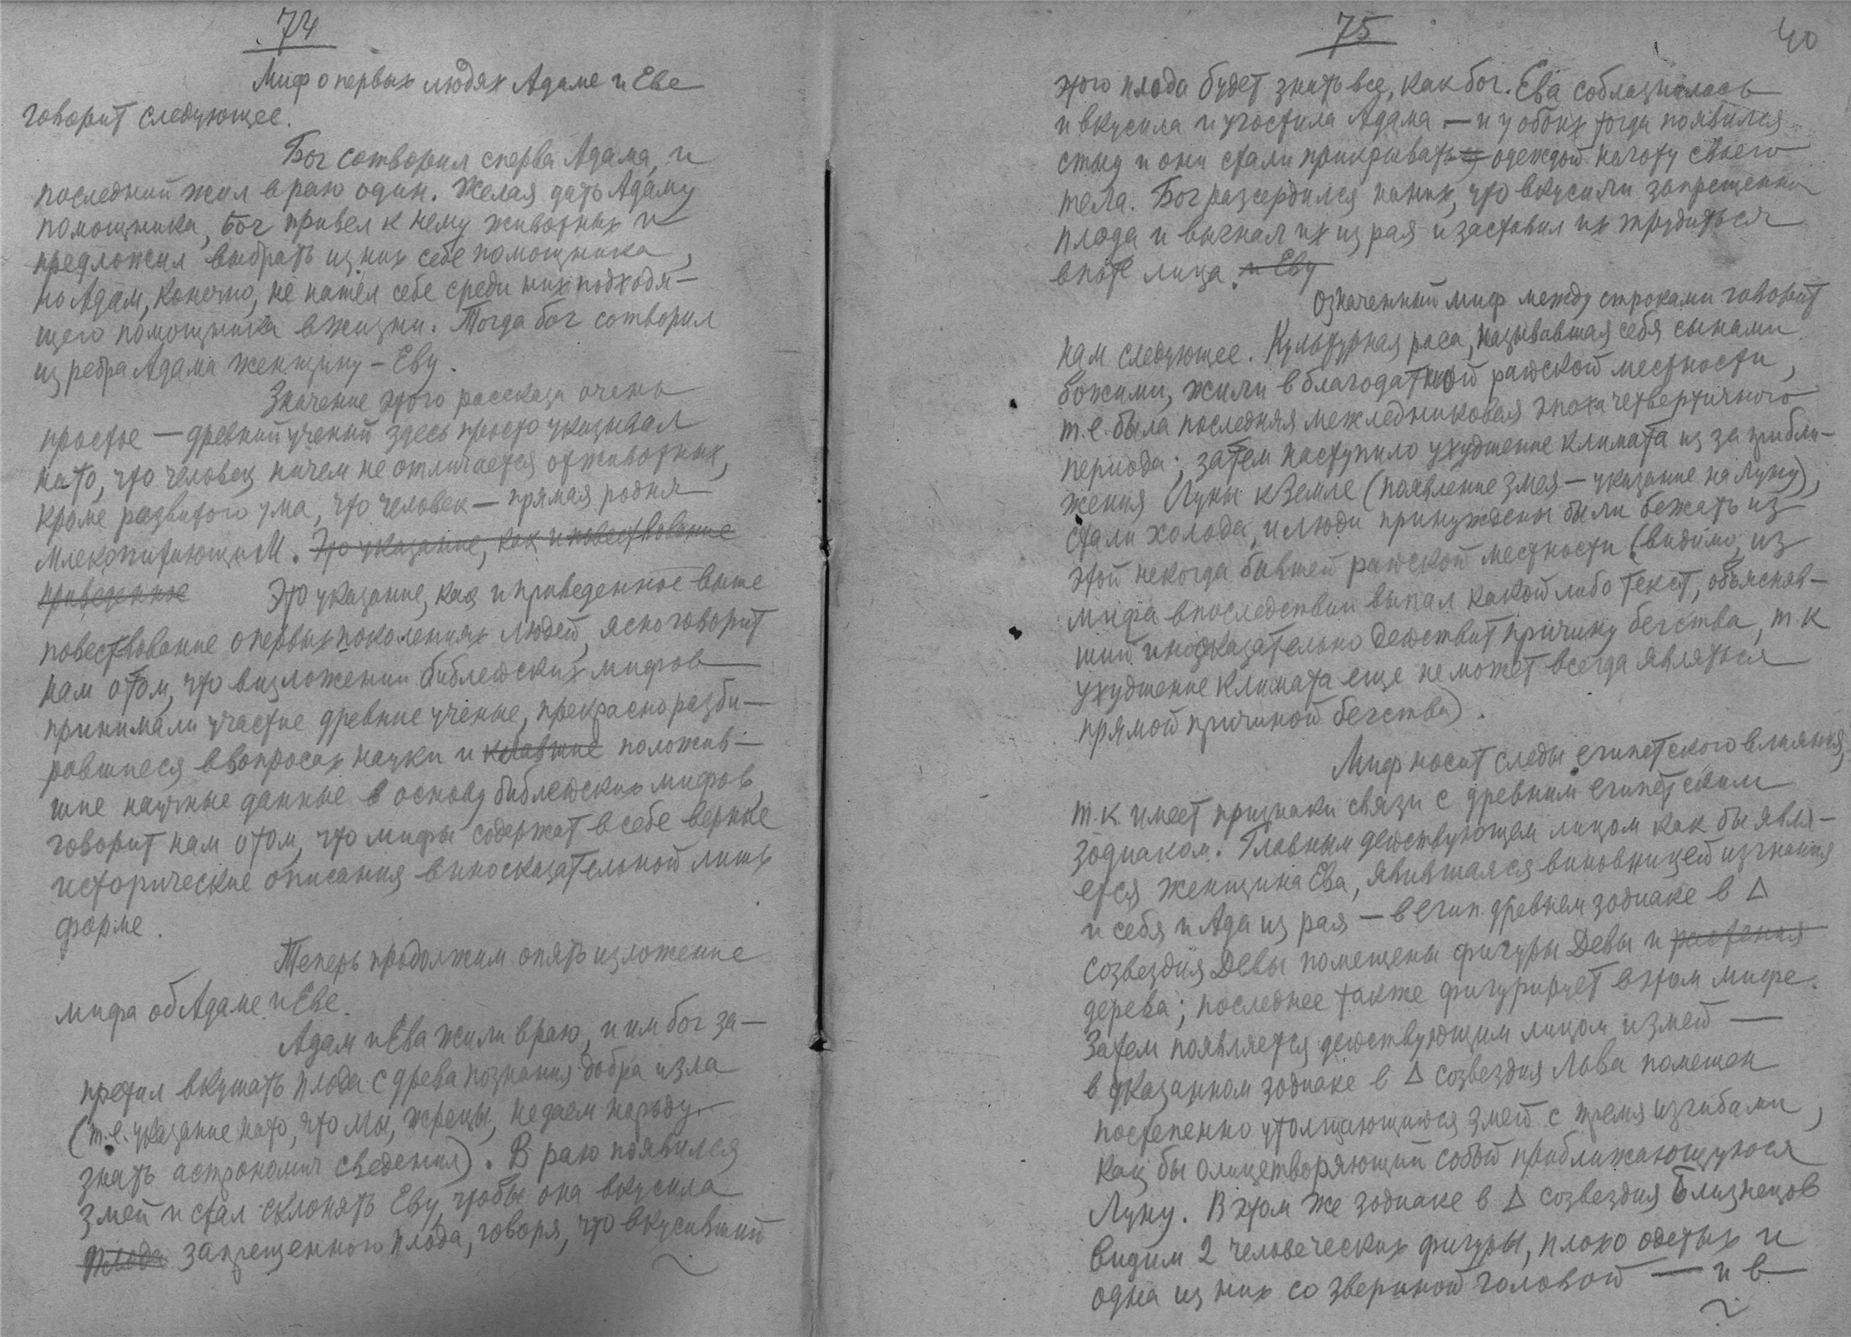 74
Миф о первых людях Адаме и Еве
говорит следующее.
Бог сотворил сперва Адама, и
последний жил в раю один. Желая дать Адаму
помощника, бог привел к нему животных и
предложил выбрать из них себе помощника,
но Адам, конечно, не нашел себе среди них подходя-
щего помощника в жизни. Тогда бог сотворил
из ребра Адама женщину – Еву.
Значение этого рассказа очень
простое — древний ученый здесь просто указывал
на то, что человек ничем не отличается от животных,
кроме развитого ума, что человек — прямая родня
млекопитающим. Это указание, как и повествование
приведенное Это указание, как и приведенное выше
повествование о первых поколениях людей, ясно говорит
нам о том, что в изложении библейских мифов
принимали участие древние ученые, прекрасно разби-
равшиеся в вопросах науки и клавшие положив-
шие научные данные в основу библейских мифов,
говорит нам о том, что мифы содержат в себе верные
исторические описания в иносказательной лишь
форме.
Теперь продолжим опять изложение
мифа об Адаме и Еве.
Адам и Ева жили в раю, и им бог за-
претил вкушать плода с древа познания добра и зла
(т.е. указание на то, что мы, жрецы, не даем народу
знать астрономич сведения). В раю появился
змей и стал склонять Еву, чтобы она вкусила
плода запрещенного плода, говоря, что вкусивший
75
40
этого плода будет знать все, как бог. Ева соблазнилась
и вкусила и угостила Адама — и у обоих тогда появился
стыд и они стали прикрывать одеждой наготу своего
тела. Бог рассердился на них, что вкусили запрещенно
плода и выгнал их из рая и заставил их трудиться
в поте лица. и Еву
Означенный миф между строками говорит
нам следующее. Культурная раса, называвшая себя сынами
божими, жили в благодатной райской местности,
т.е. была последняя межледниковая эпоха четвертичного
периода; затем наступило ухудшение климата из за прибли-
жения Луны к Земле (появление змея — указание на Луну),
стали холода, и люди принуждены были бежать из
этой некогда бывшей райской местности (видимо, из
мифа впоследствии выпал какой либо текст, объясняв-
ший иносказательно действит причину бегства, т.к
ухудшение климата еще не может всегда являться
прямой причиной бегства).
Миф носит следы египетского влияния,
т.к имеет признаки связи с древним египетским
зодиаком. Главным действующем лицом как бы явля-
ется женщина Ева, явившаяся виновницей изгнания
и себя и Ада из рая — в егип. древнем зодиаке в Δ
созвездия Девы помещены фигуры Девы и растения
дерева; последнее также фигурирует в этом мифе.
Затем появляется действующим лицом и змей —
в указанном зодиаке в Δ созвездия Льва помещен
постепенно утолщающийся змей с тремя изгибами,
как бы олицетворяющий собой приближающуюся
Луну. В этом же зодиаке в Δ созвездия Близнецов
видим 2 человеческих фигуры, плохо одетых и
одна из них со звериной головой — и в